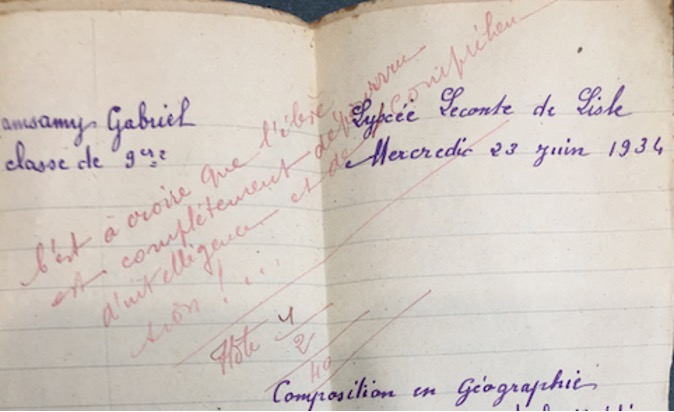 amsamy Gabriel
classe de 9ème
Lycée Leconte de Lisle
Mercredic 23 juin 1934
C'est à croire que l'élève
est complètement dépourvu
d'intelligence et de compréhen-
sion !...
Note 1/2
40
Composition en Géographie